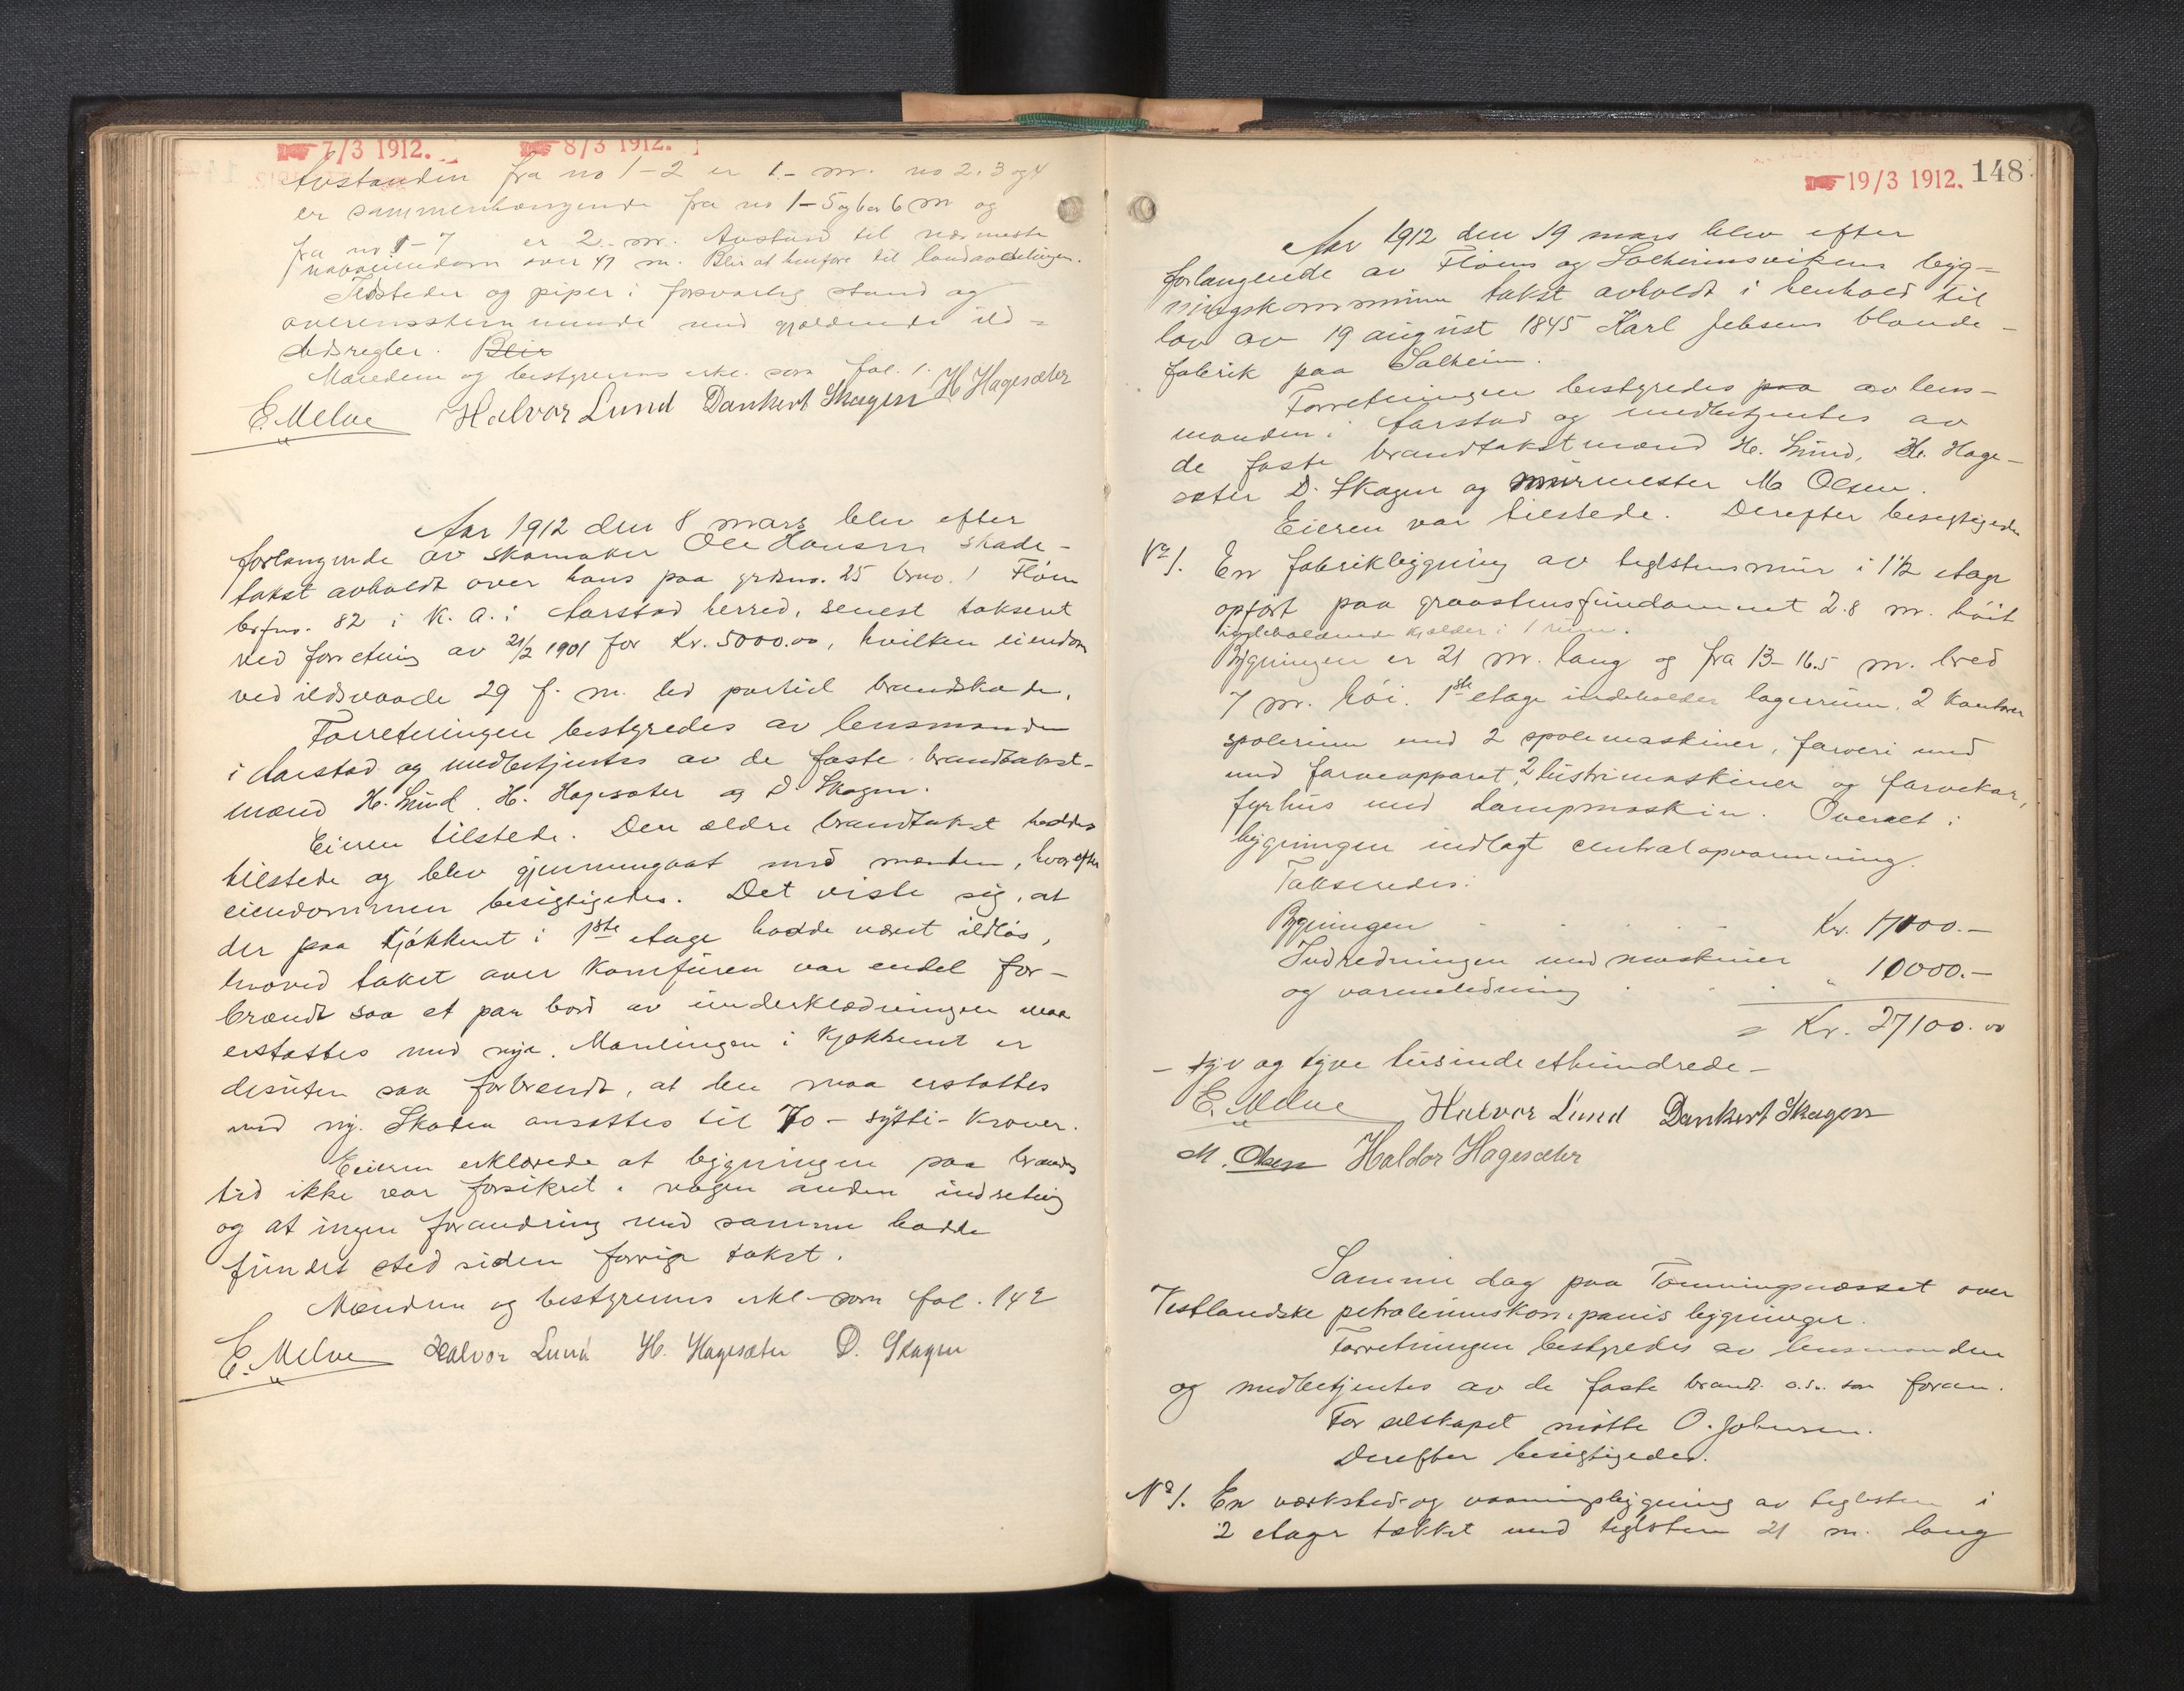 7/3 1912. 8/3 1912.
Avstanden fra no 1-2 er 1.- m. no 2. 3 og 4
er sammenhængende fra no 1-5 og 6 m og
fra no 1-7 er 2.- m. Avstand til nærmeste
naboeiendom over 47 m. Blir at henføre til landavdelingen.
Ildsteder og piper i forsvarlig stand og
overensstemmende med gjældende ild-
stedsregler. Blir
Mændene og bestyrerens erkl. som fol. 1.
E. Melve Halvor Lund Dankert Skagen H Hagesæter
Aar 1912 den 8 mars blev efter
forlangende av skomaker Ole Hansen skade-
takst avholdt over hans paa grdsno. 25 brno. 1 Fløen
brfno. 82 i K. A. i Aarstad herred, senest takseret
ved forretning av 21/2 1901 for Kr. 5000.00, hvilken eiendom
ved ildsvaade 29 f. m. led partiel brandskade.
Forretningen bestyredes av lensmanden
i Aarstad og medbetjentes av de faste brandtakst-
mænd H. Lund. H. Hagesæter og D. Skagen.
Eieren tilstede. Den ældre brandtakst haddes
tilstede og blev gjennemgaat med mænden, hvorefter
eiendommen besigtigedes. Det viste sig, at
der paa kjøkkenet i 1ste etage hadde været ildløs,
hvorved taket over komfuren var endel for-
brændt saa et par bord av underklædningen maa
erstattes med nye. Malingen i kjøkkenet er
desuten saa forbrændt, at den maa erstattes
med ny. Skaden ansættes til 70 - sytti - kroner.
Eieren erklærede at bygningen paa brandens
tid ikke var forsikret i nogen anden indretning
og at ingen forandring med samme hadde
fundet sted siden forrige takst.
Mændene og bestyrerens erkl. som fol. 142
E. Melve Halvor Lund H. Hagesæter D. Skagen
19/3 1912. 148.
Aar 1912 den 19 mars blev efter
forlangende av Fløens og Solheimsvikens byg-
ningskommission takst avholdt i henhold til
lov av 19 august 1845 Karl Jebsens blaude-
fabrik paa Solheim.
Forretningen bestyredes paa av lens-
manden i Aarstad og medbetjentes av
de faste brandtakstmænd H. Lund, H. Hage-
sæter D. Skagen og murmester M Olsen.
Eieren var tilstede. Derefter besigtigedes
No 1. En fabrikbygning av teglstensmur i 1½ etage
opført paa graastensfundament 2.8 m. høit
indeholdende kjælder i 1 rum.
Bygningen er 21 m. lang og fra 13-16.5 m. bred
7 m. høi. 1ste etage indeholder lagerrum, 2 kontorer
spolerum med 2 spolemaskiner, farveri med
med farveapparat, 2 lustrimaskiner og farvekar,
fyrhus med dampmaskin. Overalt i
bygningen indlagt centralopvarmning.
Takseredes:
Bygningen Kr. 17100.-
Indredningen med maskiner
og varmeledning " 10000.-
= Kr. 27100.00
- syv og tyve tusinde ethundrede -
E. Melve Halvor Lund Dankert Skagen
M. Olsen Haldor Hagesæter
Samme dag paa Tømningnæsset over
Vestlandske petroleumskompanis bygninger.
Forretningen bestyredes av lensmanden
og medbetjentes av de faste brandt. o.s. som foran.
For selskapet møtte O. Johnsen.
Derefter besigtigedes.
No 1. En verksted- og vaaningsbygning av teglsten i
2 etager tækket med teglsten 21 m. lang